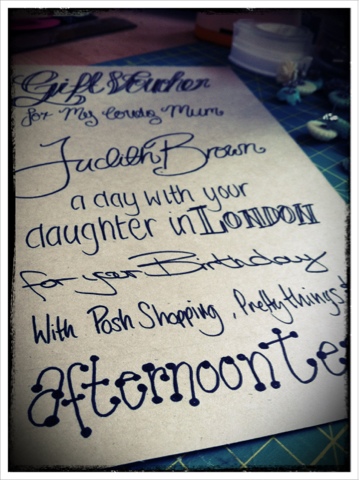 Gift Voucher
for My lovely Mum
Judith Brown
a day with your
daughter in LONDON
for your Birthday
With Posh Shopping, Pretty things
afternoon te